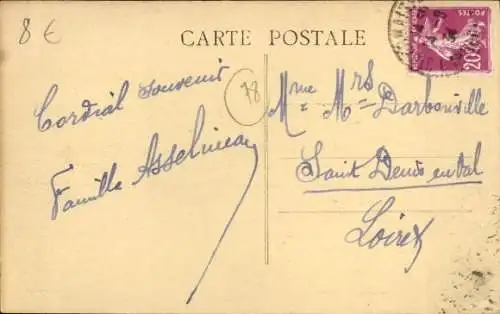 8 €
CARTE POSTALE
POSTES
20c
78
Cordial souvenir
Famille Asselineau
Mme Mrs Darbonville
Saint Denis en Val
Loiret